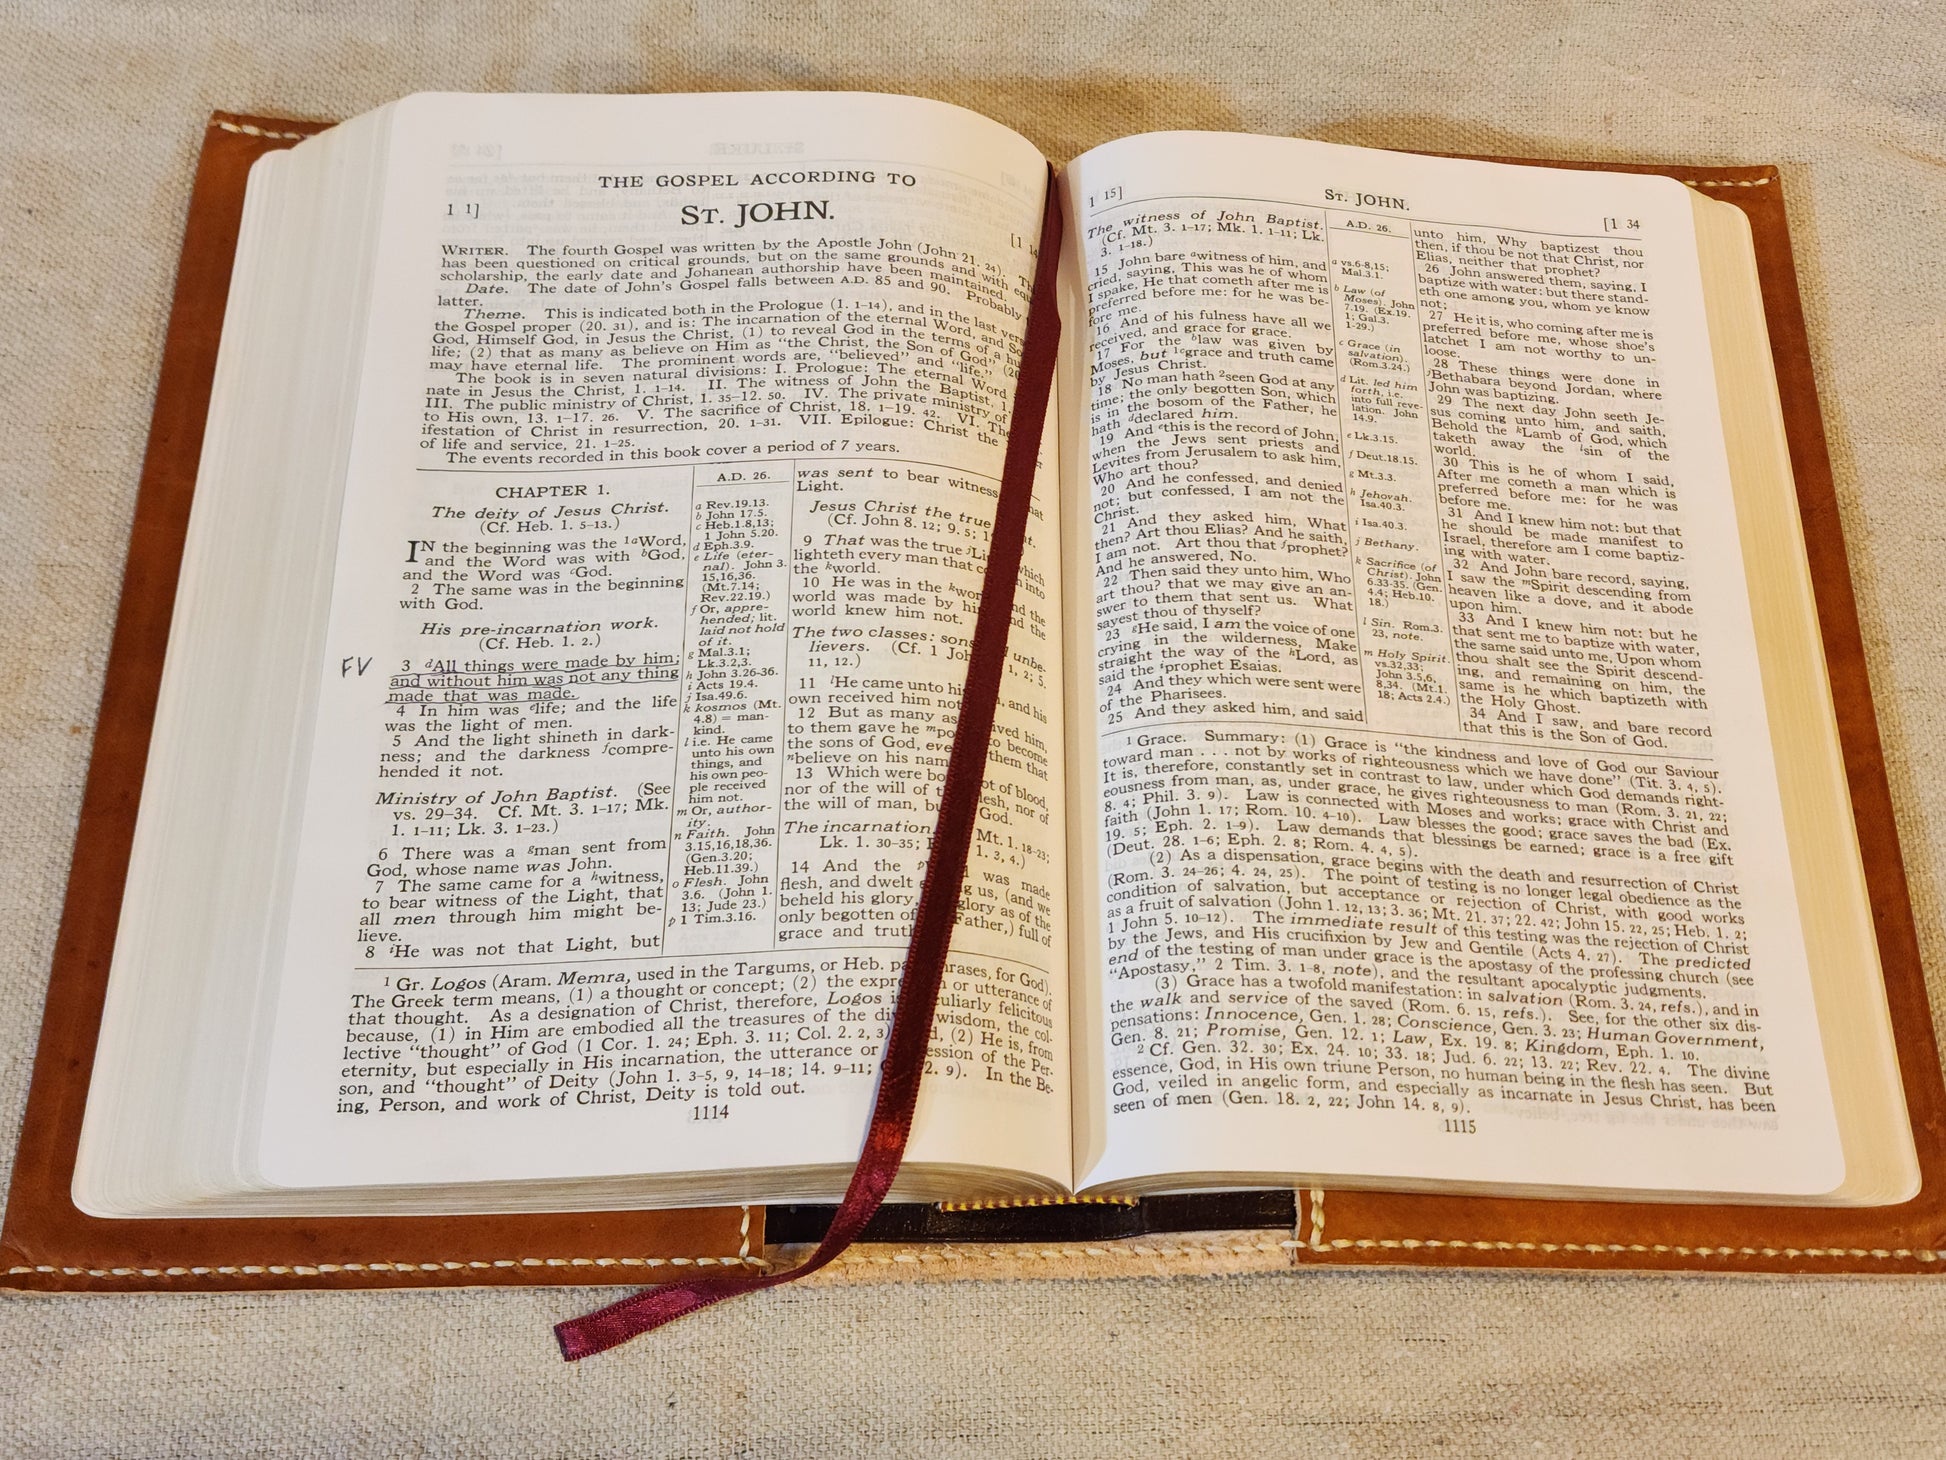 THE GOSPEL ACCORDING TO
1 1]
ST. JOHN.
[1 14
WRITER. The fourth Gospel was written by the Apostle John (John 21. 24). Th
has been questioned on critical grounds, but on the same grounds and with equ
scholarship, the early date and Johanean authorship have been maintained.
Date. The date of John's Gospel falls between A.D. 85 and 90. Probably
latter.
Theme. This is indicated both in the Prologue (1. 1-14), and in the last vers
the Gospel proper (20. 31), and is: The incarnation of the eternal Word, and So
God, Himself God, in Jesus the Christ, (1) to reveal God in the terms of a hu
life; (2) that as many as believe on Him as "the Christ, the Son of God" (20
may have eternal life. The prominent words are, "believed" and "life."
The book is in seven natural divisions: I. Prologue: The eternal Word
nate in Jesus the Christ, 1. 1-14. II. The witness of John the Baptist, 1.
III. The public ministry of Christ, 1. 35-12. 50. IV. The private ministry of
to His own, 13. 1-17. 26. V. The sacrifice of Christ, 18. 1-19. 42. VI. The
ifestation of Christ in resurrection, 20. 1-31. VII. Epilogue: Christ the
of life and service, 21. 1-25.
The events recorded in this book cover a period of 7 years.
CHAPTER 1.
The deity of Jesus Christ.
(Cf. Heb. 1. 5-13.)
IN the beginning was the 1aWord,
and the Word was with bGod,
and the Word was cGod.
2 The same was in the beginning
with God.
His pre-incarnation work.
(Cf. Heb. 1. 2.)
FV
3 dAll things were made by him;
and without him was not any thing
made that was made.
4 In him was elife; and the life
was the light of men.
5 And the light shineth in dark-
ness; and the darkness fcompre-
hended it not.
Ministry of John Baptist. (See
vs. 29-34. Cf. Mt. 3. 1-17; Mk.
1. 1-11; Lk. 3. 1-23.)
6 There was a gman sent from
God, whose name was John.
7 The same came for a hwitness,
to bear witness of the Light, that
all men through him might be-
lieve.
8 iHe was not that Light, but
A.D. 26.
a Rev.19.13.
b John 17.5.
c Heb.1.8,13;
1 John 5.20.
d Eph.3.9.
e Life (eter-
nal). John 3.
15,16,36.
(Mt.7.14;
Rev.22.19.)
f Or, appre-
hended; lit.
laid not hold
of it.
g Mal.3.1;
Lk.3.2,3.
h John 3.26-36.
i Acts 19.4.
j Isa.49.6.
k kosmos (Mt.
4.8) = man-
kind.
l i.e. He came
unto his own
things, and
his own peo-
ple received
him not.
m Or, author-
ity.
n Faith. John
3.15,16,18,36.
(Gen.3.20;
Heb.11.39.)
o Flesh. John
3.6. (John 1.
13; Jude 23.)
p 1 Tim.3.16.
was sent to bear witness
hat
Light.
Jesus Christ the true
(Cf. John 8. 12; 9. 5; 1
9 That was the true jLi which
lighteth every man that co into
the kworld.
10 He was in the kwor nd the
world was made by hi nd the
world knew him not.
The two classes: sons d unbe-
lievers. (Cf. 1 Joh 1, 2; 5.
11, 12.)
11 lHe came unto hi , and his
own received him not.
12 But as many as ived him,
to them gave he mpo to become
the sons of God, eve them that
nbelieve on his nam
13 Which were bo ot of blood,
nor of the will of t lesh, nor of
the will of man, bu God.
The incarnation. Mt. 1. 18-23;
Lk. 1. 30-35; 1. 3, 4.)
14 And the pW was made
flesh, and dwelt g us, (and we
beheld his glory, glory as of the
only begotten of Father,) full of
grace and truth
1 Gr. Logos (Aram. Memra, used in the Targums, or Heb. pa hrases, for God).
The Greek term means, (1) a thought or concept; (2) the expr n or utterance of
that thought. As a designation of Christ, therefore, Logos i culiarly felicitous
because, (1) in Him are embodied all the treasures of the di wisdom, the col-
lective "thought" of God (1 Cor. 1. 24; Eph. 3. 11; Col. 2. 2, 3) d, (2) He is, from
eternity, but especially in His incarnation, the utterance or ession of the Per-
son, and "thought" of Deity (John 1. 3-5, 9, 14-18; 14. 9-11; C 2. 9). In the Be-
ing, Person, and work of Christ, Deity is told out.
1114
1 15]
ST. JOHN.
[1 34
The witness of John Baptist.
(Cf. Mt. 3. 1-17; Mk. 1. 1-11; Lk.
3. 1-18.)
15 John bare awitness of him, and
cried, saying, This was he of whom
I spake, He that cometh after me is
preferred before me: for he was be-
fore me.
16 And of his fulness have all we
received, and grace for grace.
17 For the blaw was given by
Moses, but 1cgrace and truth came
by Jesus Christ.
18 No man hath 2seen God at any
time; the only begotten Son, which
is in the bosom of the Father, he
hath ddeclared him.
19 And ethis is the record of John,
when the Jews sent priests and
Levites from Jerusalem to ask him,
Who art thou?
20 And he confessed, and denied
not; but confessed, I am not the
Christ.
21 And they asked him, What
then? Art thou Elias? And he saith,
I am not. Art thou that fprophet?
And he answered, No.
22 Then said they unto him, Who
art thou? that we may give an an-
swer to them that sent us. What
sayest thou of thyself?
23 gHe said, I am the voice of one
crying in the wilderness, Make
straight the way of the hLord, as
said the iprophet Esaias.
24 And they which were sent were
of the Pharisees.
25 And they asked him, and said
A.D. 26.
a vs.6-8,15;
Mal.3.1.
b Law (of
Moses). John
7.19. (Ex.19.
1; Gal.3.
1-29.)
c Grace (in
salvation).
(Rom.3.24.)
d Lit. led him
forth, i.e.
into full reve-
lation. John
14.9.
e Lk.3.15.
f Deut.18.15.
g Mt.3.3.
h Jehovah.
Isa.40.3.
i Isa.40.3.
j Bethany.
k Sacrifice (of
Christ). John
6.33-35. (Gen.
4.4; Heb.10.
18.)
l Sin. Rom.3.
23, note.
m Holy Spirit.
vs.32,33;
John 3.5,6,
8,34. (Mt.1.
18; Acts 2.4.)
unto him, Why baptizest thou
then, if thou be not that Christ, nor
Elias, neither that prophet?
26 John answered them, saying, I
baptize with water: but there stand-
eth one among you, whom ye know
not;
27 He it is, who coming after me is
preferred before me, whose shoe's
latchet I am not worthy to un-
loose.
28 These things were done in
jBethabara beyond Jordan, where
John was baptizing.
29 The next day John seeth Je-
sus coming unto him, and saith,
Behold the kLamb of God, which
taketh away the lsin of the
world.
30 This is he of whom I said,
After me cometh a man which is
preferred before me: for he was
before me.
31 And I knew him not: but that
he should be made manifest to
Israel, therefore am I come baptiz-
ing with water.
32 And John bare record, saying,
I saw the mSpirit descending from
heaven like a dove, and it abode
upon him.
33 And I knew him not: but he
that sent me to baptize with water,
the same said unto me, Upon whom
thou shalt see the Spirit descend-
ing, and remaining on him, the
same is he which baptizeth with
the Holy Ghost.
34 And I saw, and bare record
that this is the Son of God.
1 Grace. Summary: (1) Grace is "the kindness and love of God our Saviour
toward man . . . not by works of righteousness which we have done" (Tit. 3. 4, 5).
It is, therefore, constantly set in contrast to law, under which God demands right-
eousness from man, as, under grace, he gives righteousness to man (Rom. 3. 21, 22;
8. 4; Phil. 3. 9). Law is connected with Moses and works; grace with Christ and
faith (John 1. 17; Rom. 10. 4-10). Law blesses the good; grace saves the bad (Ex.
19. 5; Eph. 2. 1-9). Law demands that blessings be earned; grace is a free gift
(Deut. 28. 1-6; Eph. 2. 8; Rom. 4. 4, 5).
(2) As a dispensation, grace begins with the death and resurrection of Christ
(Rom. 3. 24-26; 4. 24, 25). The point of testing is no longer legal obedience as the
condition of salvation, but acceptance or rejection of Christ, with good works
as a fruit of salvation (John 1. 12, 13; 3. 36; Mt. 21. 37; 22. 42; John 15. 22, 25; Heb. 1. 2;
1 John 5. 10-12). The immediate result of this testing was the rejection of Christ
by the Jews, and His crucifixion by Jew and Gentile (Acts 4. 27). The predicted
end of the testing of man under grace is the apostasy of the professing church (see
"Apostasy," 2 Tim. 3. 1-8, note), and the resultant apocalyptic judgments.
(3) Grace has a twofold manifestation: in salvation (Rom. 3. 24, refs.), and in
the walk and service of the saved (Rom. 6. 15, refs.). See, for the other six dis-
pensations: Innocence, Gen. 1. 28; Conscience, Gen. 3. 23; Human Government,
Gen. 8. 21; Promise, Gen. 12. 1; Law, Ex. 19. 8; Kingdom, Eph. 1. 10.
2 Cf. Gen. 32. 30; Ex. 24. 10; 33. 18; Jud. 6. 22; 13. 22; Rev. 22. 4. The divine
essence, God, in His own triune Person, no human being in the flesh has seen. But
God, veiled in angelic form, and especially as incarnate in Jesus Christ, has been
seen of men (Gen. 18. 2, 22; John 14. 8, 9).
1115